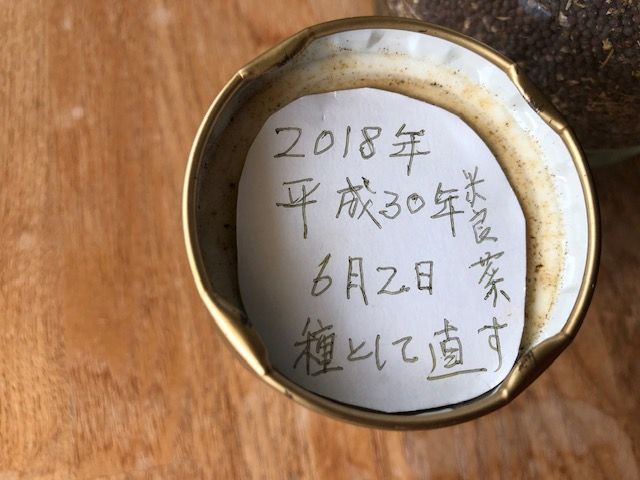 2018年
平成30年
6月2日
種として直す